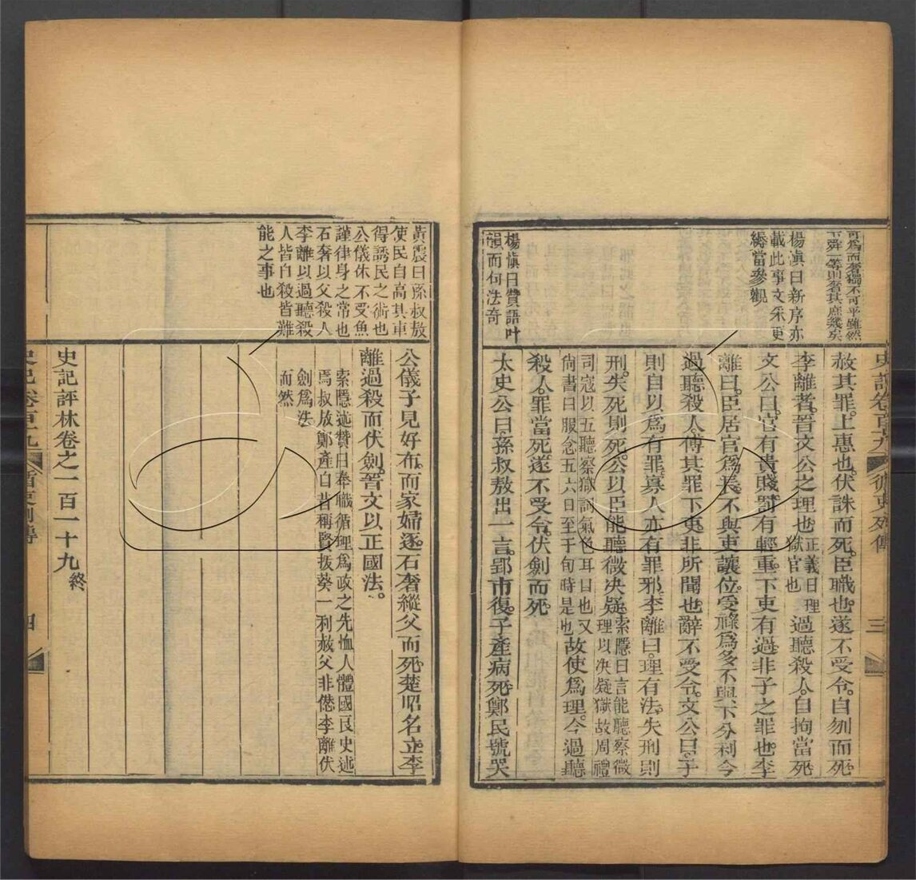 赦其罪上惠也伏誅而死臣職也遂不受令自刎而死
李離者晉文公之理也正義曰理獄官也過聽殺人自拘當死
文公曰官有貴賤罰有輕重下吏有過非子之罪也李
離曰臣居官爲長不與吏讓位受祿爲多不與下分利今
過聽殺人傅其罪下吏非所聞也辭不受令文公曰子
則自以爲有罪寡人亦有罪邪李離曰理有法失刑則
刑失死則死公以臣能聽微決疑索隱曰言能聽察微理以決疑獄故周禮
司寇以五聽察獄詞氣色耳目也又尙書曰服念五六日至于旬時是也故使爲理今過聽
殺人罪當死遂不受令伏劍而死
太史公曰孫叔敖出一言郢市復子產病死鄭民號哭
楊愼曰新序亦
載此事文采更
勝當參觀
楊愼曰贊語叶
韻而何法奇
公儀子見好布而家婦逐石奢縱父而死楚昭名立李
離過殺而伏劍晉文以正國法
索隱述贊曰奉職循理爲政之先恤人體國良史述
焉叔敖鄭產自昔稱賢拔葵一利赦父非愆李離伏
劍爲法
而然
史記評林卷之一百一十九終
黃震曰孫叔敖
使民自高其車
得誘民之術也
公儀休不受魚
謹律身之常也
石奢以父殺人
李離以過聽殺
人皆自殺皆難
能之事也
循吏列傳
三
四